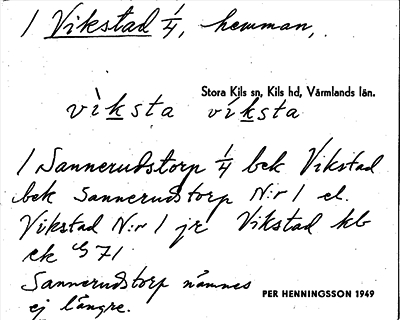 1 Vikstad 1/4, hemman,
Stora Kils sn, Kils hd, Värmlands län.
vìksta víksta
1 Sannerudstorp 1/4 bek Vikstad
bek Sannerudstorp N:r 1 el.
Vikstad N:r 1 jr Vikstad kb
ek 71
Sannerudstorp nämnes
ej längre.
PER HENNINGSSON 1949